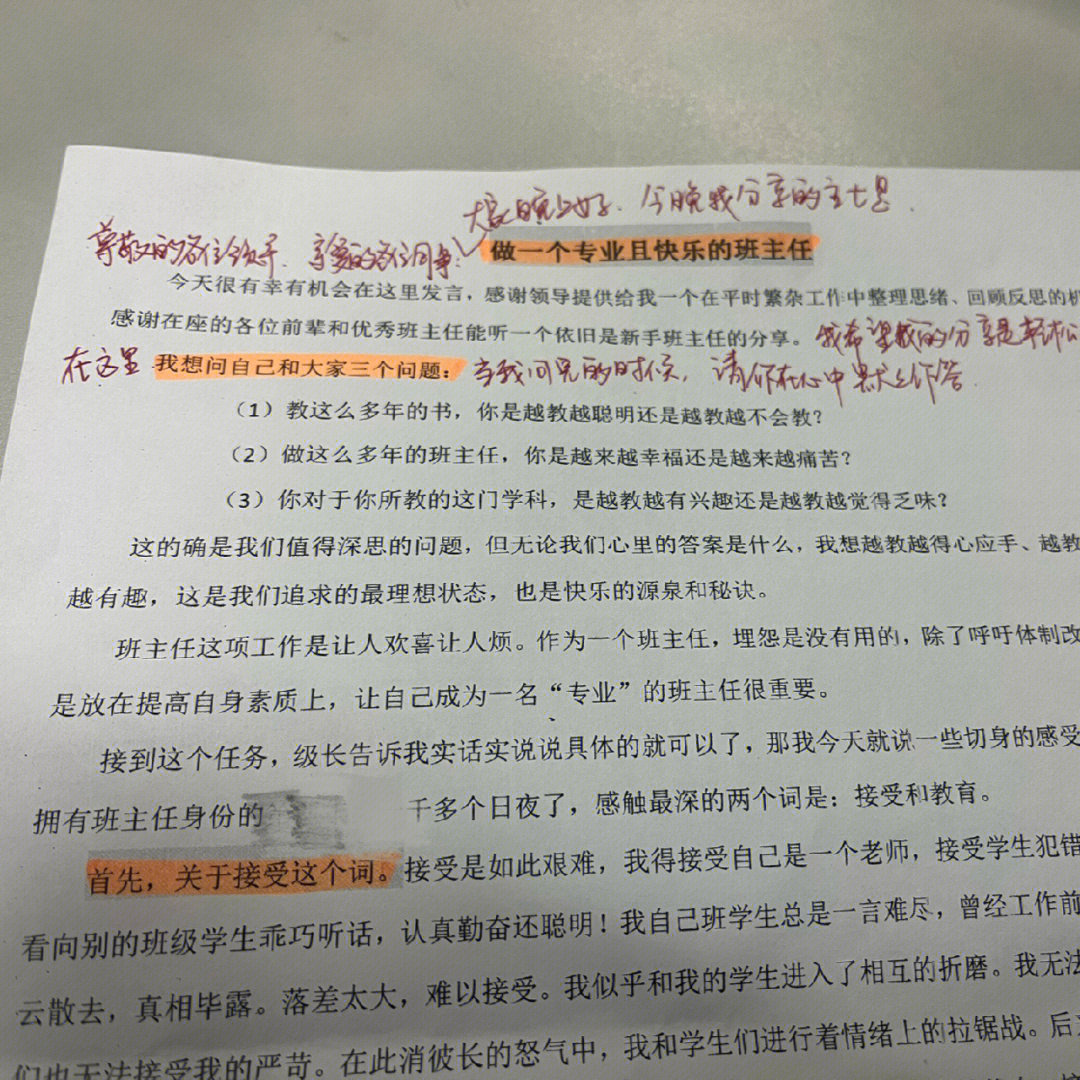 大家晚上好、今晚我分享的主题是
尊敬的各位领导、亲爱的各位同事：
做一个专业且快乐的班主任
今天很有幸有机会在这里发言，感谢领导提供给我一个在平时繁杂工作中整理思绪、回顾反思的机
感谢在座的各位前辈和优秀班主任能听一个依旧是新手班主任的分享。我希望我的分享是轻松
在这里 我想问自己和大家三个问题：当我问完的时候，请你在心中默默作答
（1）教这么多年的书，你是越教越聪明还是越教越不会教？
（2）做这么多年的班主任，你是越来越幸福还是越来越痛苦？
（3）你对于你所教的这门学科，是越教越有兴趣还是越教越觉得乏味？
这的确是我们值得深思的问题，但无论我们心里的答案是什么，我想越教越得心应手、越教
越有趣，这是我们追求的最理想状态，也是快乐的源泉和秘诀。
班主任这项工作是让人欢喜让人烦。作为一个班主任，埋怨是没有用的，除了呼吁体制改
是放在提高自身素质上，让自己成为一名“专业”的班主任很重要。
接到这个任务，级长告诉我实话实说说具体的就可以了，那我今天就说一些切身的感受
拥有班主任身份的 千多个日夜了，感触最深的两个词是：接受和教育。
首先，关于接受这个词。接受是如此艰难，我得接受自己是一个老师，接受学生犯错
看向别的班级学生乖巧听话，认真勤奋还聪明！我自己班学生总是一言难尽，曾经工作前
云散去，真相毕露。落差太大，难以接受。我似乎和我的学生进入了相互的折磨。我无法
们也无法接受我的严苛。在此消彼长的怒气中，我和学生们进行着情绪上的拉锯战。后